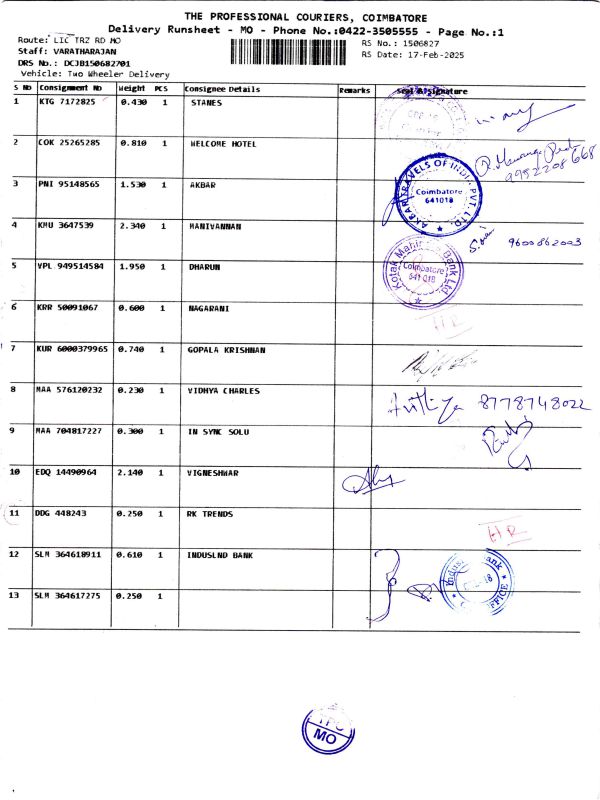 THE PROFESSIONAL COURIERS, COIMBATORE
Delivery Runsheet - MO - Phone No.:0422-3505555 - Page No.:1
Route: LIC TRZ RD MO
RS No.: 1506827
Staff: VARATHARAJAN
RS Date: 17-Feb-2025
DRS No.: DCJB150682701
Vehicle: Two Wheeler Delivery
S No Consignment No Weight PCS Consignee Details Remarks Seal & Signature
1 KTG 7172825 0.430 1 STANES
2 COK 25265285 0.810 1 WELCOME HOTEL
9952208668
3 PNI 95148565 1.530 1 AKBAR
AKBAR TRAVELS OF INDIA PVT. LTD.
Coimbatore
641018
4 KMU 3647539 2.340 1 MANIVANNAN
9600862003
5 VPL 949514584 1.950 1 DHARUN
Kotak Mahindra Bank Ltd
Coimbatore
641 018
6 KRR 50091067 0.600 1 NAGARANI
7 KUR 6000379965 0.740 1 GOPALA KRISHNAN
8 MAA 576120232 0.230 1 VIDHYA CHARLES
8778748022
9 MAA 704817227 0.300 1 IN SYNC SOLU
10 EDQ 14490964 2.140 1 VIGNESHWAR
11 DDG 448243 0.250 1 RK TRENDS
12 SLM 364618911 0.610 1 INDUSLND BANK
13 SLM 364617275 0.250 1
TPC
MO